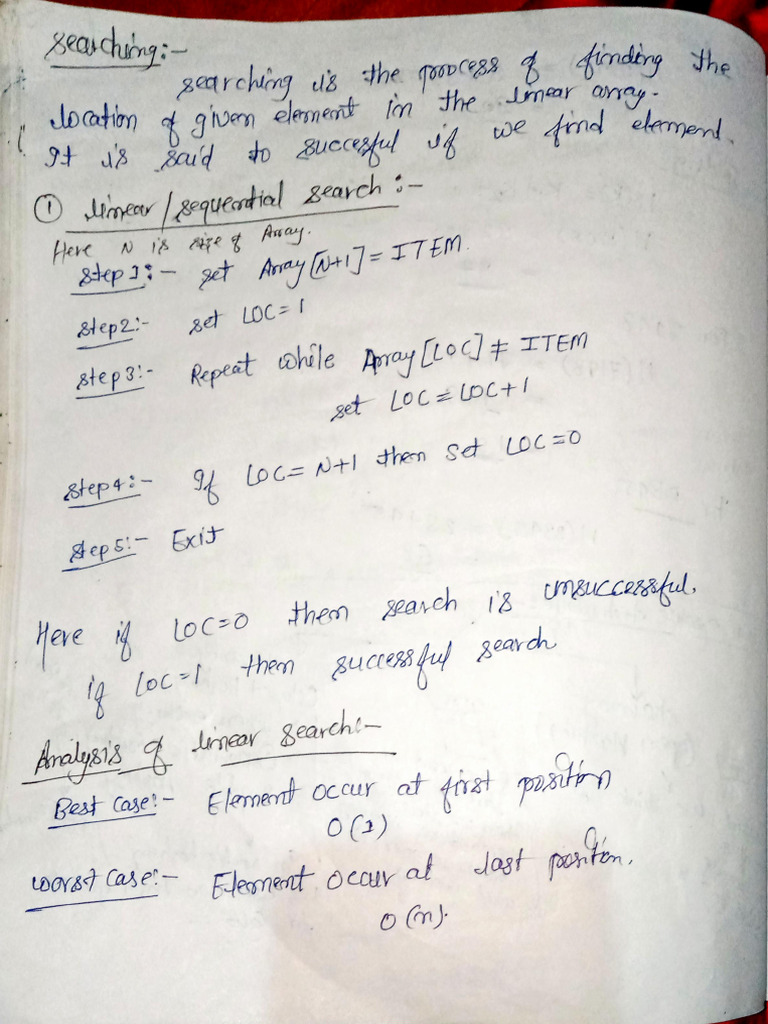 Searching:-
searching is the process of finding the
location of given element in the linear array.
It is said to succesful if we find element.
① linear/sequential search:-
Here N is size of Array.
Step 1:- set Array[N+1] = ITEM.
Step 2:- set LOC = 1
Step 3:- Repeat while Array[LOC] ≠ ITEM
set LOC = LOC+1
Step 4:- If LOC = N+1 then set LOC = 0
Step 5:- Exit
Here if LOC=0 then search is unsuccessful.
if LOC=1 then successful search
Analysis of linear search:-
Best case:- Element occur at first position
O(1)
worst case:- Element occur at last position.
O(n).